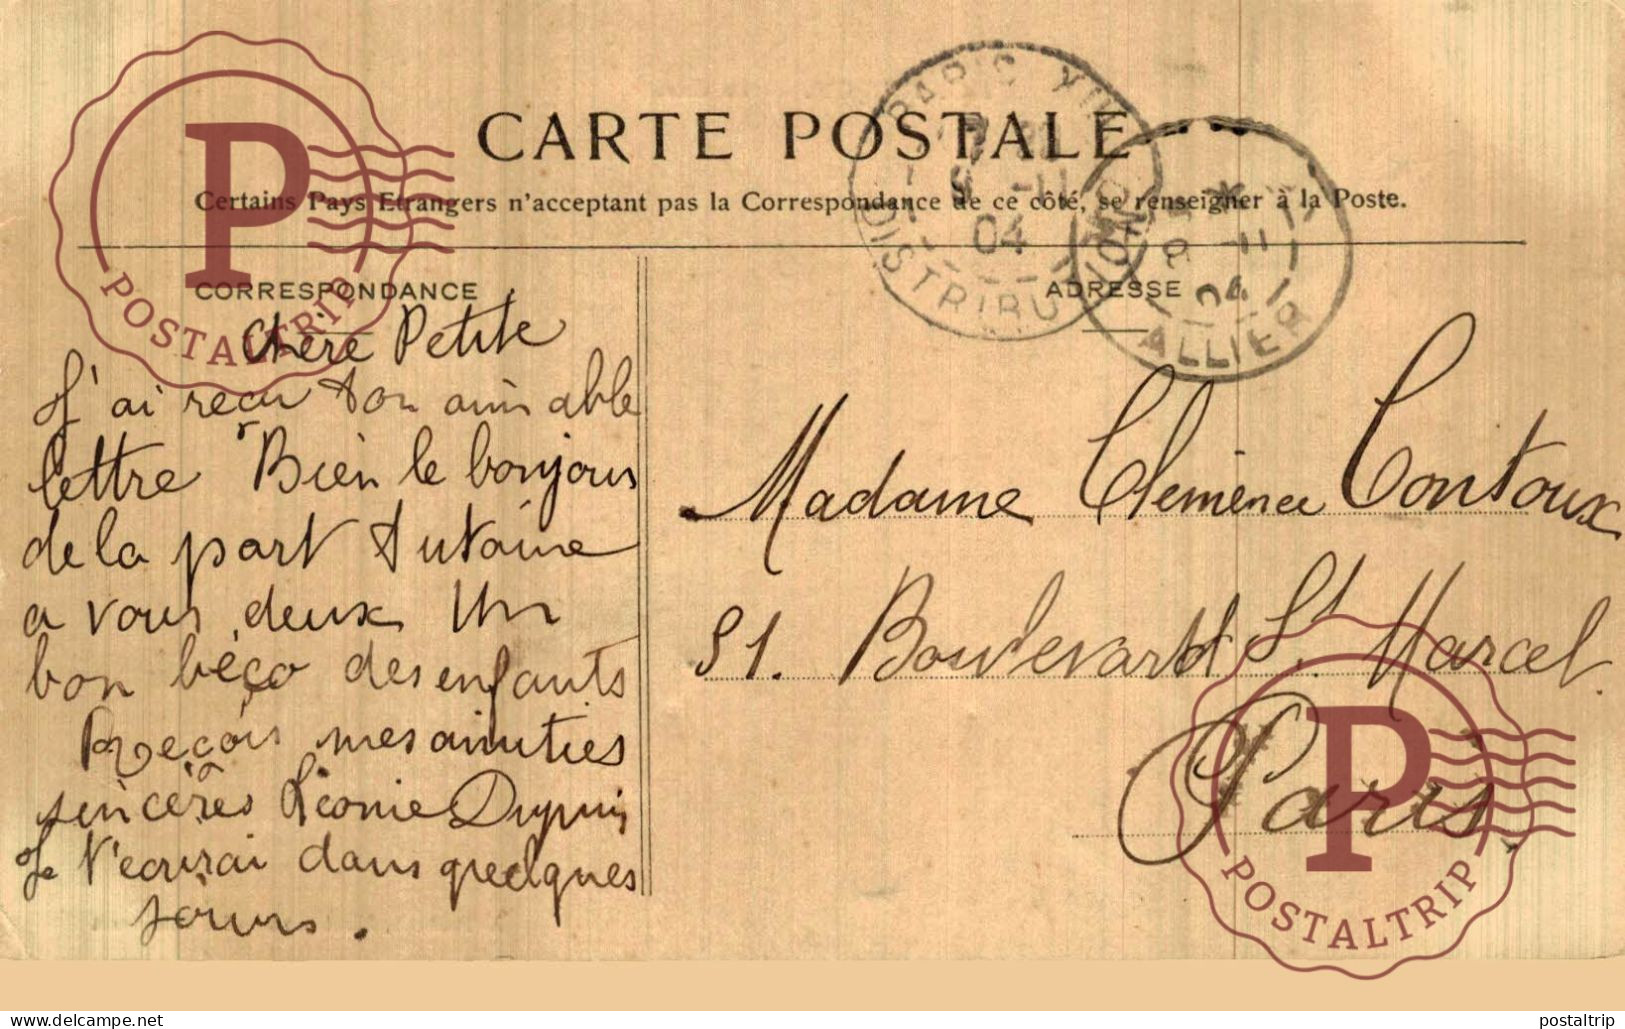 CARTE POSTALE
Certains Pays Etrangers n'acceptent pas la Correspondance de ce côté, se renseigner à la Poste.
PARIS XIII
9 -11
04
DISTRIBUTION
8 -11
04
ALLIER
CORRESPONDANCE
ADRESSE
Chère Petite
J'ai reçu ton aimable
lettre Bien le bonjour
de la part Antoine
a vous deux Un
bon béço des enfants
Reçois mes amitiés
sincères Léonie Dupuis
Je t'écrirai dans quelques
jours.
Madame Clémence Contoux
51. Boulevard St. Marcel.
Paris
POSTALTRIP
POSTALTRIP
www.delcampe.net
postaltrip